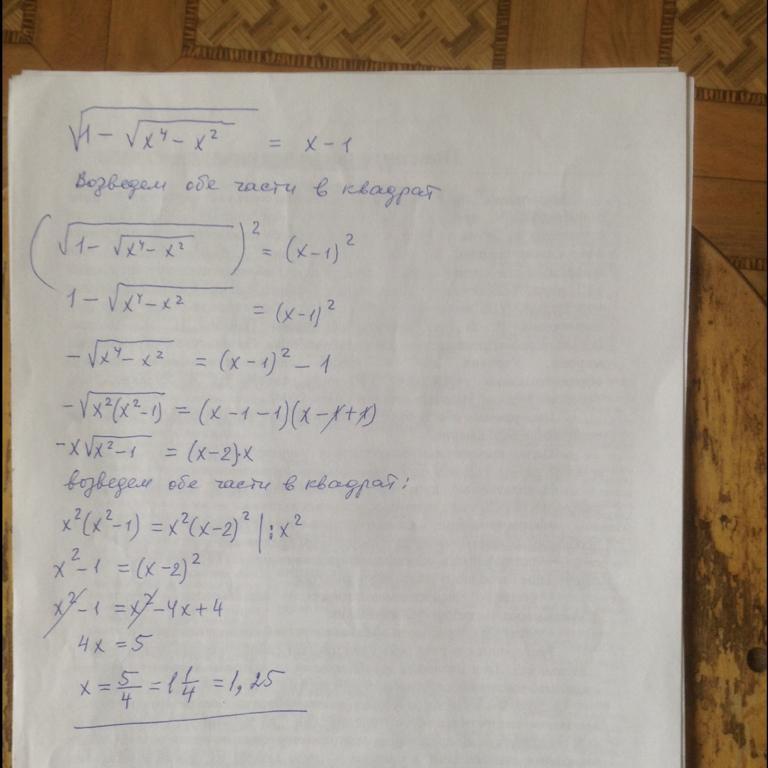 √(1 - √(x⁴ - x²)) = x - 1
Возведем обе части в квадрат
(√(1 - √(x⁴ - x²)))² = (x-1)²
1 - √(x⁴ - x²) = (x-1)²
-√(x⁴ - x²) = (x-1)² - 1
-√(x²(x²-1)) = (x-1-1)(x-1+1)
-x√(x²-1) = (x-2)·x
возведем обе части в квадрат:
x²(x²-1) = x²(x-2)² |:x²
x²-1 = (x-2)²
x²-1 = x²-4x+4
4x = 5
x = 5/4 = 1 1/4 = 1,25